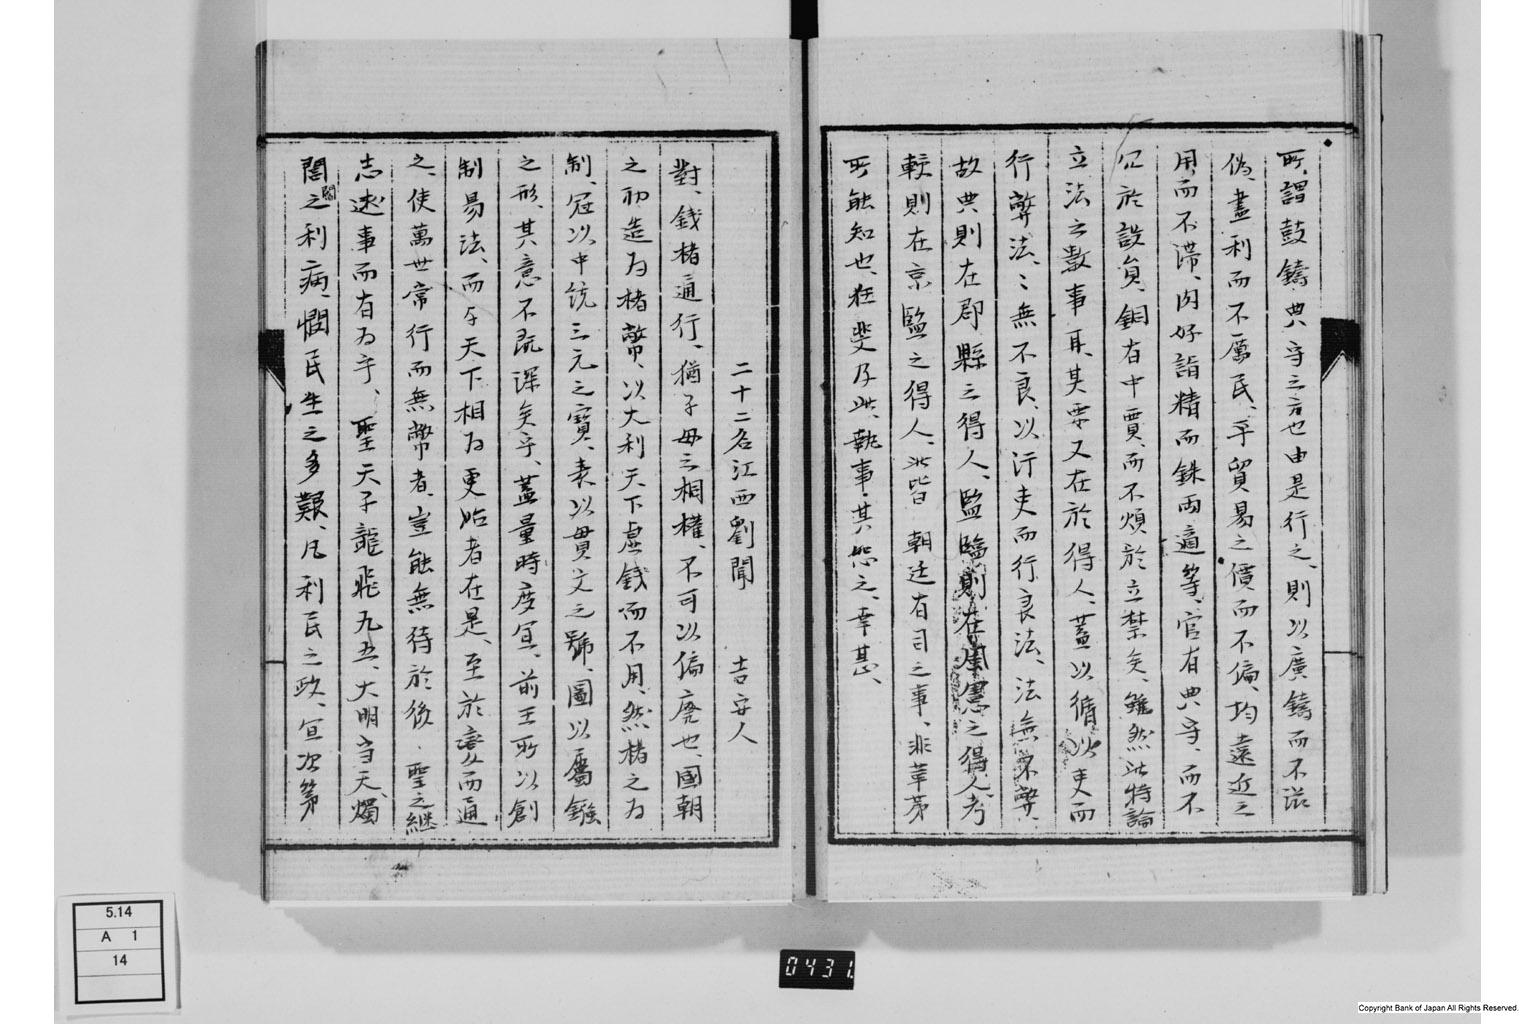 所謂鼓鑄典守之言也由是行之、則以廣鑄而不滋
偽、盡利而不厲民、平貿易之價、而不偏、均遠近之
用、而不滯、肉好詣精而銖兩適等、官有典守、而不
冗於設員、銅有中賈、而不煩於立禁矣、雖然此特論
立法之數事耳、其要又在於得人、蓋以循以吏而
行弊法、〻無不良、以汙吏而行良法、法無不弊、
故典則在郡縣之得人、監臨則在風憲之得人、考
較則在京監之得人、此皆 朝廷有司之事、非草茅
所能知也、狂斐及此、執事其恕之、幸甚、
二十二名江西劉聞 吉安人
對、錢楮通行、猶子母之相權、不可以偏廃也、國朝
之初造为楮幣、以大利天下虛錢而不用、然楮之为
制、冠以中統三元之寶、表以貫文之號、圖以屬鏹
之形、其意不既深矣乎、蓋量時度宜、前王所以創
制易法、而与天下相为更始者在是、至於變而通
之、使萬世常行而無幣者、豈能無待於後、聖之継
志述事而有为乎、聖天子龍飛九五、大明当天、燭
閭閻之利病、憫民生之多艱、凡利民之政、宜次第
0431.
5.14
A 1
14
Copyright Bank of Japan All Rights Reserved.